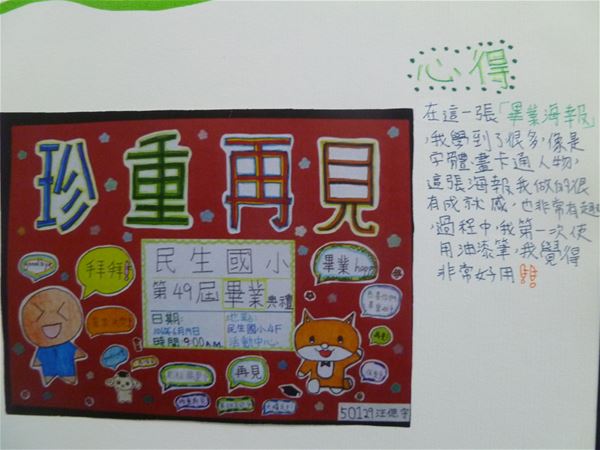 心得
在這一張「畢業海報」
,我學到了很多,像是
字體、畫卡通人物,
這張海報我做的很
有成就感,也非常有趣
,過程中,我第一次使
用油漆筆,我覺得
非常好用!!
珍重再見
民生國小
第49屆畢業典禮
日期:
地點:
民生國小4F
時間:9:00A.M.
活動中心
拜拜
畢業
再見
50129